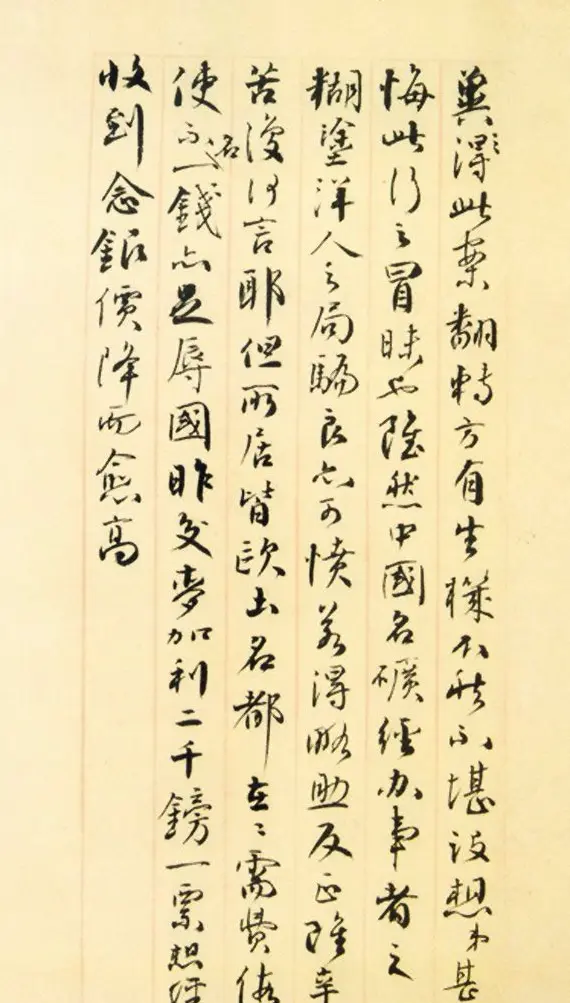 冀得此案翻轉方有生機不然不堪設想弟甚
悔此行之冒昧也雖然中國名礦經办事者之
糊塗洋人之局騙良亦可憤若得略助反正雖辛
苦復何言耶但所居皆歐土名都在在需費倘
使不名一錢亦足辱國昨交麥加利二千鎊一票想經
收到念銀價降而愈高